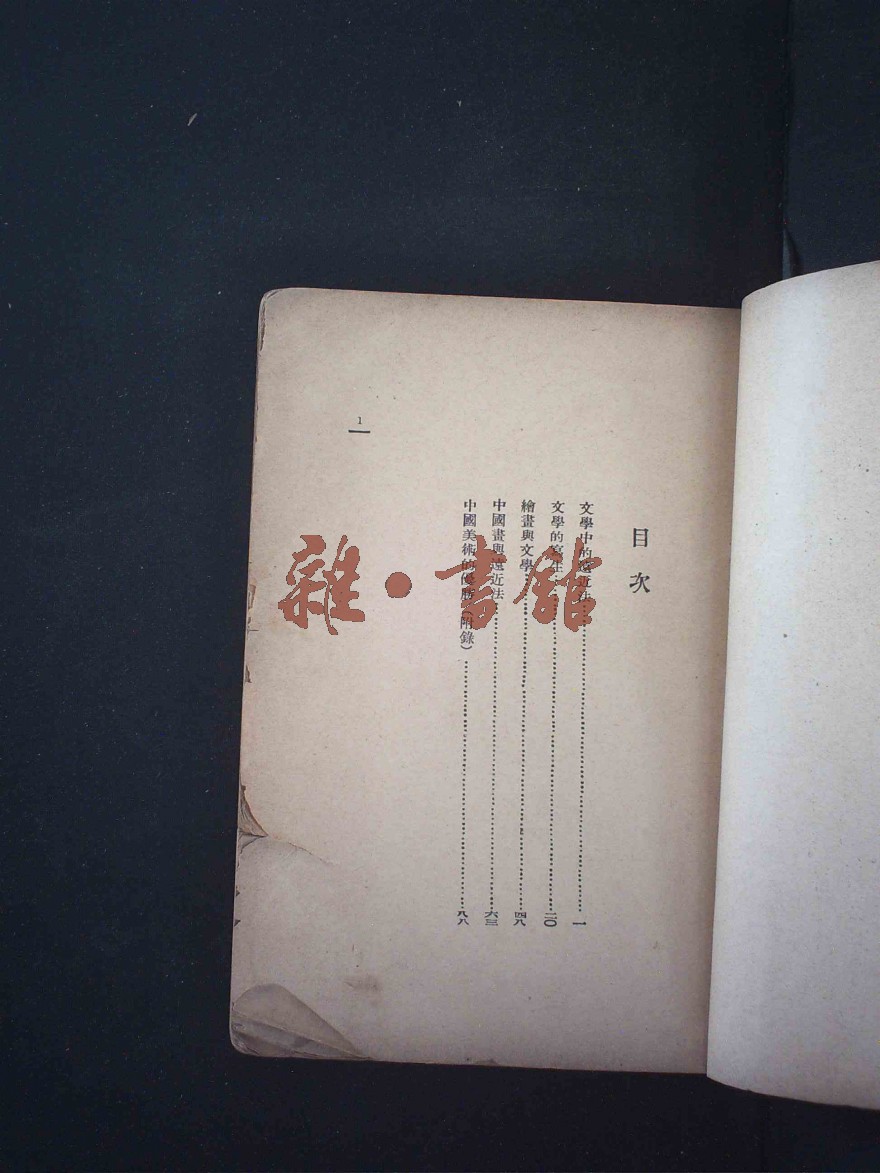 目次
文學中的遠近法……一
文學的寫生……二〇
繪畫與文學……四八
中國畫與遠近法……六三
中國美術的優勝（附錄）……八八
1
雜·書館